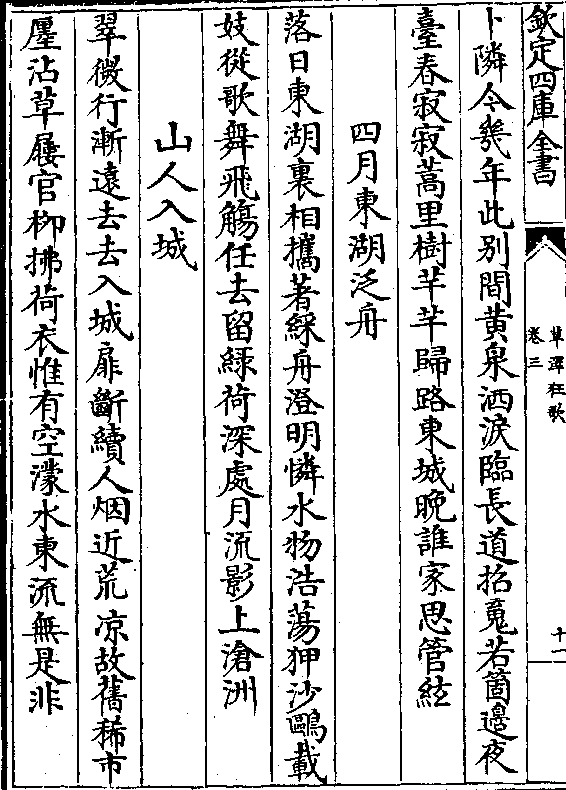 欽定四庫全書
草澤狂歌
卷三
十一
卜隣今幾年此别間黄泉洒淚臨長道招䰟若箇邊夜
臺春寂寂蒿里樹芊芊歸路東城晚誰家思管絃
四月東湖泛舟
落日東湖裏相攜著綵舟澄明憐水物浩蕩狎沙鷗載
妓從歌舞飛觴任去留緑荷深處月流影上滄洲
山人入城
翠微行漸遠去去入城扉斷續人烟近荒凉故舊稀市
廛沾草屨官柳拂荷衣惟有空濛水東流無是非